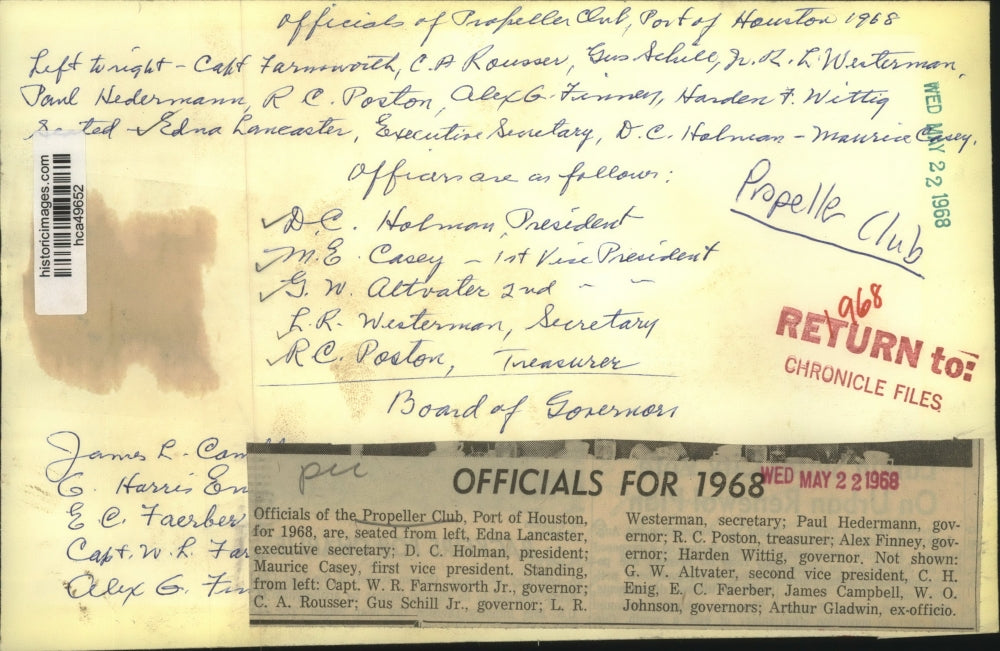 Officials of Propeller Club, Port of Houston 1968
Left to right - Capt Farnsworth, C. A Rousser, Gus Schill, Jr. R. L. Westerman,
Paul Hedermann, R C. Poston, Alex G. Finney, Harden F. Wittig
Seated - Edna Lancaster, Executive Secretary, D. C. Holman - Maurice Casey.
Officers are as follows:
D. C. Holman, President
M. E. Casey - 1st Vice President
G. W. Altvater 2nd " "
L. R. Westerman, Secretary
R C. Poston, Treasurer
Board of Governors
James L. Cam
C. Harris En
E C. Faerber
Capt. W. L. Far
Alex G. Fin
historicimages.com
hca49652
WED MAY 22 1968
Propeller Club
1968
RETURN to:
CHRONICLE FILES
OFFICIALS FOR 1968
WED MAY 22 1968
Officials of the Propeller Club, Port of Houston,
for 1968, are, seated from left, Edna Lancaster,
executive secretary; D. C. Holman, president;
Maurice Casey, first vice president. Standing,
from left: Capt. W. R. Farnsworth Jr., governor;
C. A. Rousser; Gus Schill Jr., governor; L. R.
Westerman, secretary; Paul Hedermann, gov-
ernor; R. C. Poston, treasurer; Alex Finney, gov-
ernor; Harden Wittig, governor. Not shown:
G. W. Altvater, second vice president, C. H.
Enig, E. C. Faerber, James Campbell, W. O.
Johnson, governors; Arthur Gladwin, ex-officio.